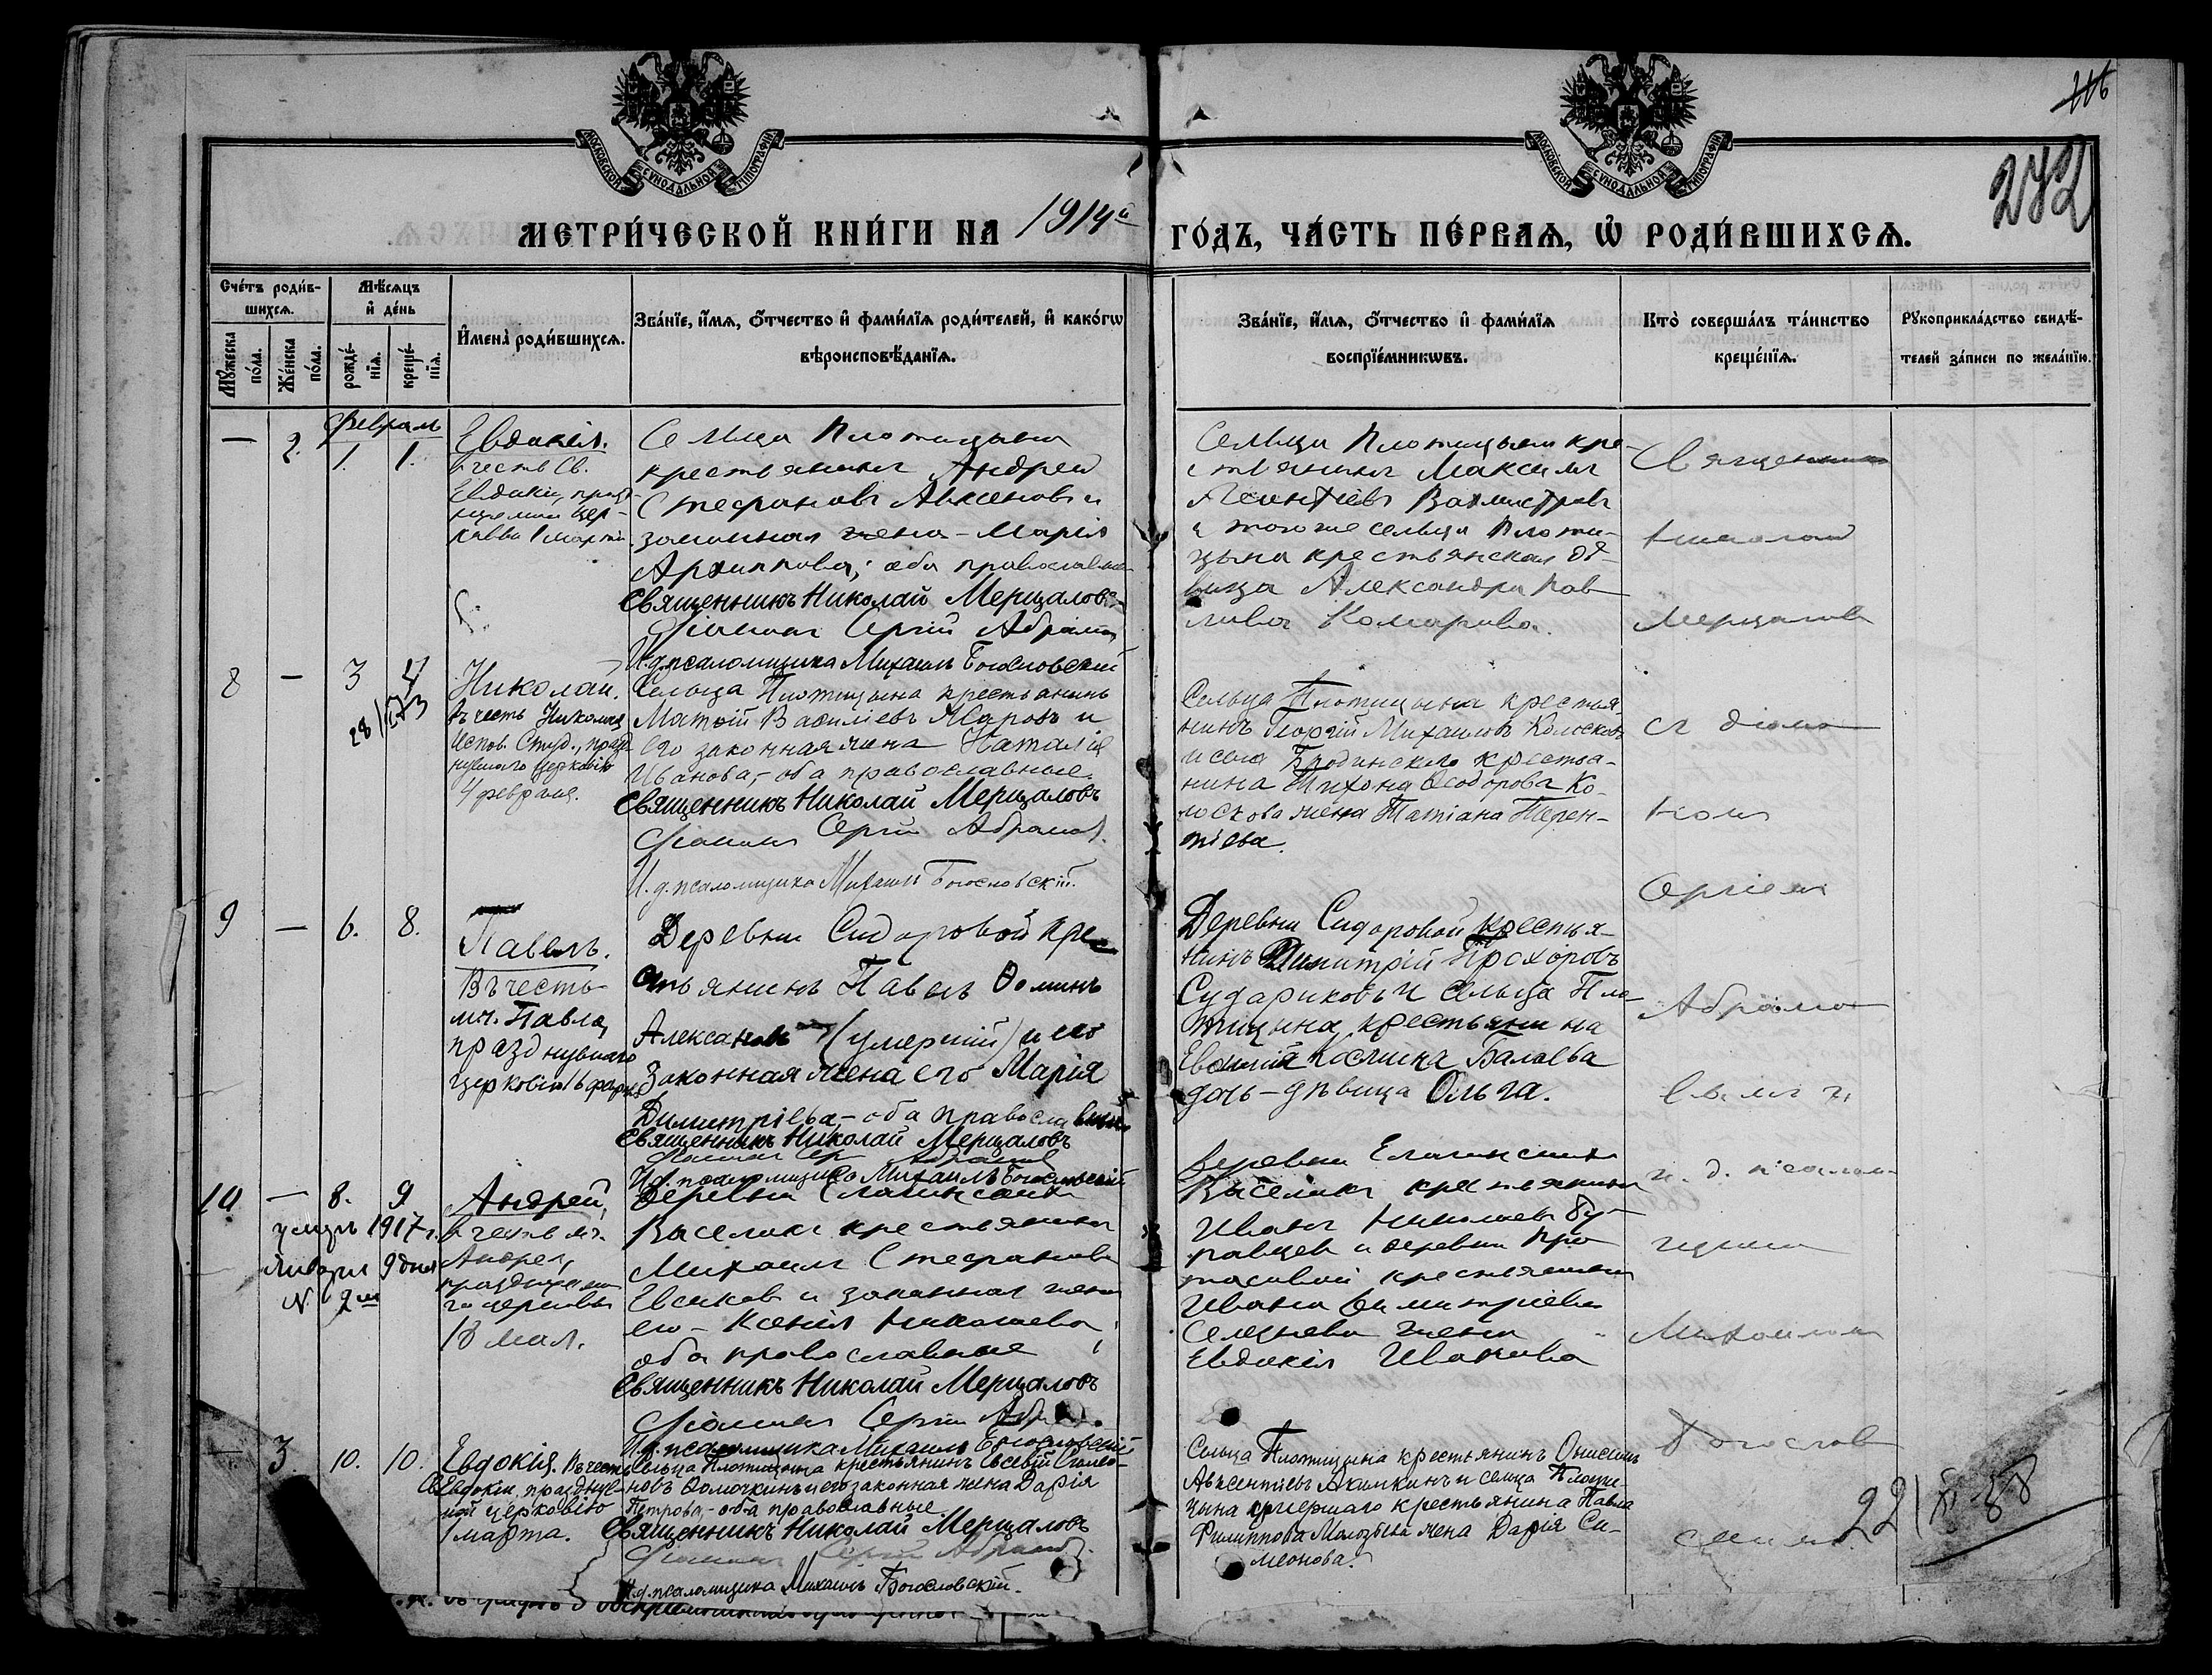 116
232
МОСКОВСКОЙ СѴНОДАЛЬНОЙ ТѴПОГРАФІИ
МОСКОВСКОЙ СѴНОДАЛЬНОЙ ТѴПОГРАФІИ
МЕТРИ́ЧЕСКОЙ КНИ́ГИ НА 1914й ГО́ДЪ, ЧА́СТЬ ПЕ́РВАѦ, Ѡ҆ РОДИ́ВШИХСѦ.
Сче́тъ роди́в-
шихсѧ.
Мѣ́сѧцъ
и҆ де́нь
Мꙋ́жеска
по́ла.
Же́нска
по́ла.
рожде́-
нїѧ.
креще́-
нїѧ.
И҆мена̀ роди́вшихсѧ.
Зва́нїе, и҆́мѧ, ѻ҆́тчество и҆ фами́лїѧ роди́телей, и҆ како́гѡ
вѣроисповѣ́данїѧ.
Зва́нїе, и҆́мѧ, ѻ҆́тчество и҆ фами́лїѧ
воспрїе́мникѡвъ.
Кто̀ соверша́лъ та́инство
креще́нїѧ.
Рꙋкоприкла́дство свидѣ́-
телей за́писи по жела́нїю.
Февраль
— 2. 1. 1.
Евдокія.
въ честь Св.
Евдокіи, празд-
церковью 1 марта.
Сельца Плотицына
крестьянинъ Андрей
Стефановъ Авксеновъ и
законная жена - Марія
Архиппова; оба православные
Священникъ Николай Мерцаловъ
Діаконъ Сергій Абрамовъ
И.д. псаломщика Михаилъ Богословскій
Сельца Плотицына кре-
стьянинъ Максимъ
Леонтіевъ
и тогоже сельца Плоти-
цына крестьянская дѣ-
вица Александра Пав-
лова Комарова.
8 — 3 4
Николай.
въ честь Николая
Испов. Студ., празд-
нуемаго церковію
4 февраля.
Сельца Плотицына крестьянинъ
Матѳій Василіевъ Жаровъ и
его законная жена Наталія
Иванова, - оба православные.
Священникъ Николай Мерцаловъ
Діаконъ Сергій Абрамовъ.
И.д. псаломщика Михаилъ Богословскій.
Сельца Плотицына крестья-
нинъ Георгій Михаиловъ Колосковъ
и села Бродинскаго крестья-
нина Тихона Ѳеодорова Ко-
лоскова жена Татіана Терен-
тіева.
9 — 6. 8.
Павелъ.
Въ честь
мч. Павла,
празднуемаго
церковію 16 февраля
Деревни Сидоровой кре-
стьянинъ Павелъ Ѳоминъ
(умершій) и его
законная жена его Марія
Димитріева, - оба православные
Священникъ Николай Мерцаловъ
Діаконъ Сер Абрамовъ
И.д. псаломщика Михаилъ Богословскій
Деревни Сидоровой крестья-
нинъ Димитрій Прохоровъ
Судариковъ и сельца Пло-
тицына, крестьянина
Евфимія Косьмина Балаева
дочь - дѣвица Ольга.
10 — 8. 9.
умеръ 1917 г.
января 9 дня
N. 2й
Андрей,
въ честь мч.
Андрея,
празднуема-
го церковью
18 мая.
Деревни Елагинскихъ
Выселокъ крестьянинъ
Михаилъ Стефановъ
Евсиковъ и законная жена
его - Ксенія Николаева,
оба православные
Священникъ Николай Мерцаловъ
Діаконъ Сергій Абрамовъ
И.д. псаломщика Михаилъ Богословскій
Деревни Елагинскихъ
Выселокъ крестьянинъ
Иванъ Николаевъ Бу-
равцевъ и деревни Про-
тасовой крестьянина
Ивана Димитріева
Селезнева жена
Евдокія Иванова
— 3. 10. 10.
Евдокія. Въ честь
Св. Евдокіи, празднуе-
мой церковію
1 марта.
Сельца Плотицына крестьянинъ Евсевій Симео-
новъ Ѳомочкинъ и его законная жена Дарія
Петрова, - оба православные
Священникъ Николай Мерцаловъ
Діаконъ Сергій Абрамовъ.
И.д. псаломщика Михаилъ Богословскій.
Сельца Плотицына крестьянинъ Онисимъ
Авксентіевъ Акимкинъ и сельца Плоти-
цына умершаго крестьянина Павла
Филиппова жена Дарія Си-
меонова.
Священникъ
Николай
Мерцаловъ
съ діако
номъ
Сергіемъ
Абрамо
вымъ и
и. д. псалом-
щика
Михаиломъ
Богослов
скимъ.